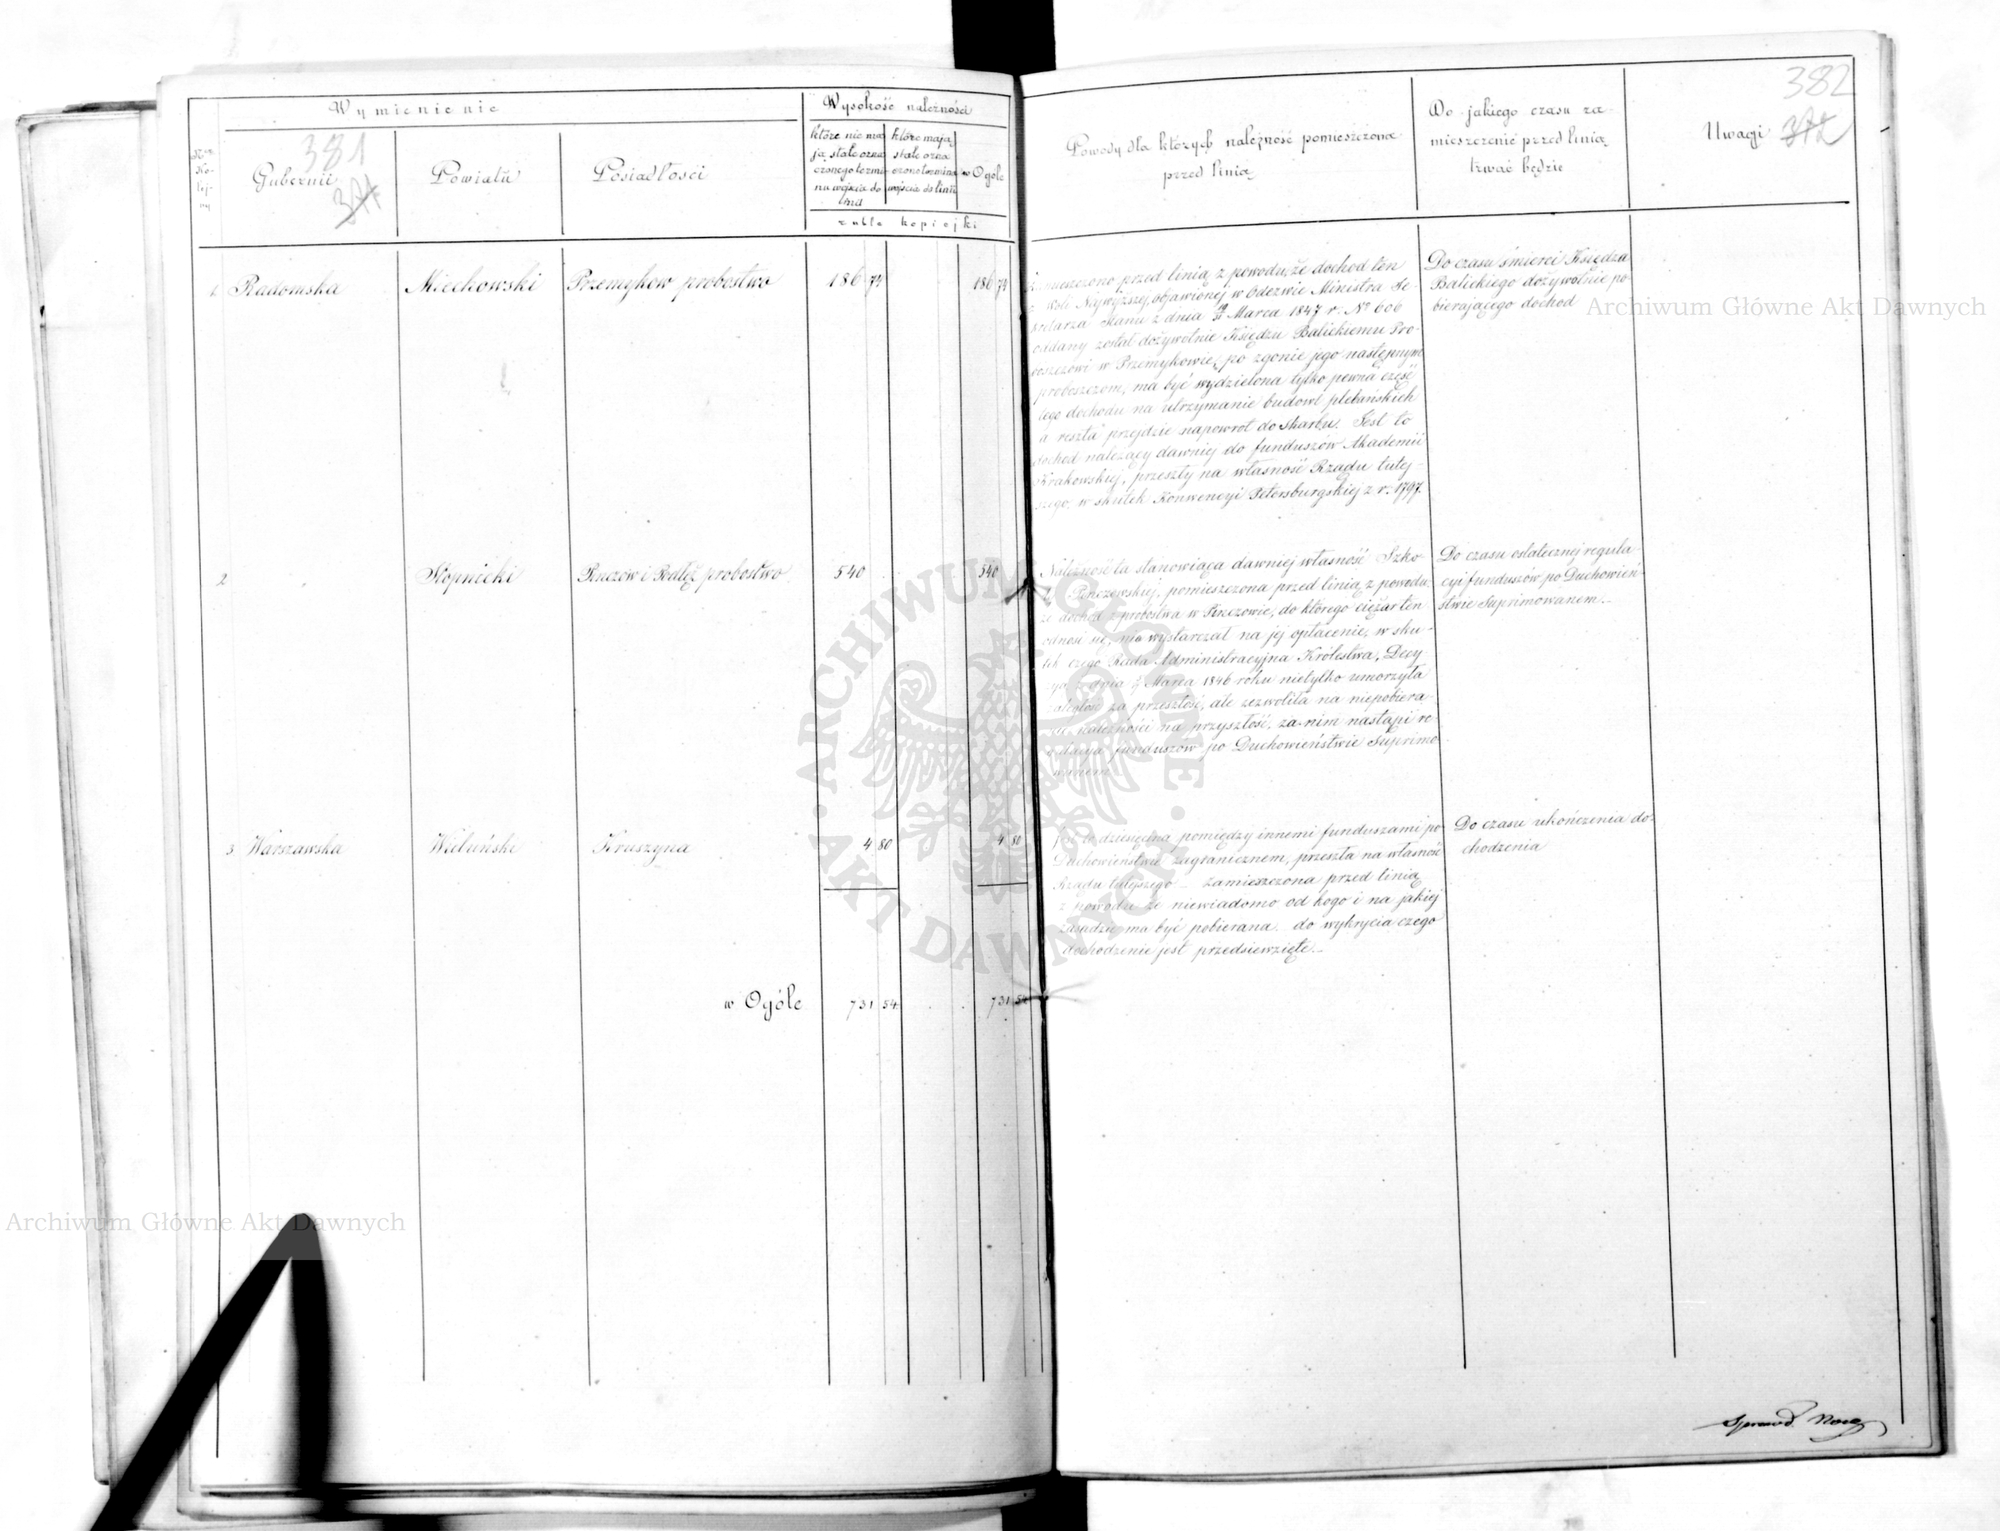 Wymienienie
Wysokość należności
381
377
Gubernii
Powiatu
Posiadłości
które nie ma
ją stale ozna
czonego termi
nu wejścia do
linii
które mają
stale ozna
czono termina
wejścia do linii
w Ogóle
ruble kopiejki
1. Radomska Miechowski Przemyków probostwo 186 74 186 74
2 Stopnicki Pinczów i Podłęż probostwo 540 540
3 Warszawska Wieluński Kruszyna 4 80 4 80
w Ogóle 731 54 731 54
382
Powody dla których należność pomieszczona
przed linią
Do jakiego czasu za-
mieszczenie przed linią
trwać będzie
Uwagi
Zamieszczono przed linią z powodu, że dochod ten
z woli Najwyższej, objawionej w Odezwie Ministra Se-
kretarza Stanu z dnia Marca 1847 r. No 606
oddany został dożywotnie Księdzu Balickiemu Pro-
boszczowi w Przemykowie, po zgonie jego następnym
proboszczom, ma być wydzielona tylko pewna część
tego dochodu na utrzymanie budowl plebańskich
a reszta przejdzie napowrót do Skarbu. Jest to
dochod należący dawniej do funduszów Akademii
Krakowskiej, przeszły na własność Rządu tutej-
szego, w skutek Konwencyi Petersburgskiej z r. 1797.
Do czasu śmierci Księdza
Balickiego dożywotnie po-
bierającego dochod
Należność ta stanowiąca dawniej własność Szko-
ły Pinczowskiej, pomieszczona przed linią z powodu
że dochód z probostwa w Pinczowie, do którego ciężar ten
odnosi się, nie wystarczał na jej opłacenie, w sku-
tek czego Rada Administracyjna Królestwa, Decy-
zyą z dnia Marca 1846 roku nietylko umorzyła
zaległość za przeszłość, ale zezwoliła na niepobiera-
nie należności na przyszłość, zanim nastąpi re-
gulacya funduszów po Duchowieństwie Suprimo-
wanem
Do czasu ostatecznej regula-
cyi funduszów po Duchowień-
stwie Suprimowanem.
Jest to dziesięcina pomiędzy innemi funduszami po
Duchowieństwie zagranicznem, przeszła na własność
Rządu tutejszego. zamieszczona przed linią
z powodu że niewiadomo od kogo i na jakiej
zasadzie ma być pobierana do wykrycia czego
dochodzenie jest przedsięwzięte.
Do czasu ukończenia do-
chodzenia
Archiwum Główne Akt Dawnych
Archiwum Główne Akt Dawnych
ARCHIWUM GŁÓWNE AKT DAWNYCH